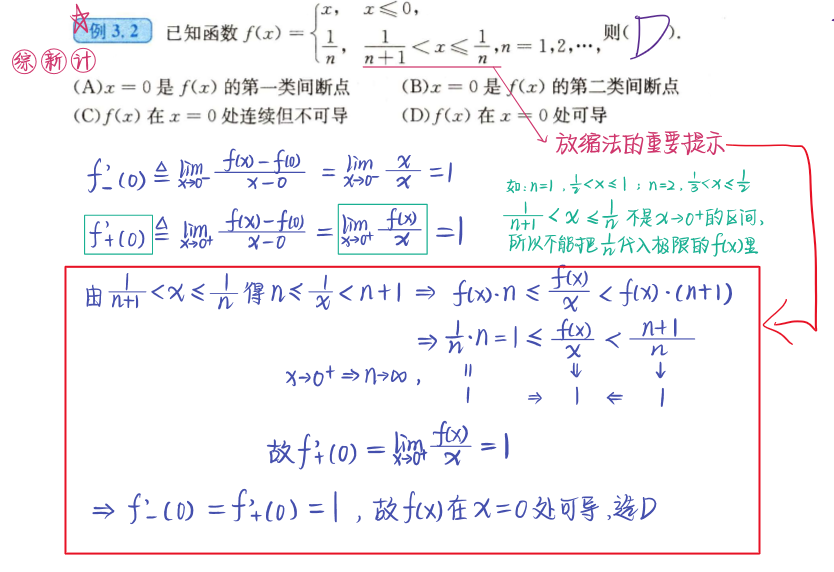 例 3.2 已知函数 f(x) = { x, x ≤ 0, 1/n, 1/(n+1) < x ≤ 1/n, n = 1,2,…, 则( D ).
综 新 计
(A) x = 0 是 f(x) 的第一类间断点 (B) x = 0 是 f(x) 的第二类间断点
(C) f(x) 在 x = 0 处连续但不可导 (D) f(x) 在 x = 0 处可导
放缩法的重要提示
f'₋(0) ≜ lim_{x→0⁻} (f(x)-f(0))/(x-0) = lim_{x→0⁻} x/x = 1
如: n=1, 1/2<x≤1; n=2, 1/3<x≤1/2
f'₊(0) ≜ lim_{x→0⁺} (f(x)-f(0))/(x-0) = lim_{x→0⁺} f(x)/x = 1
1/(n+1) < x ≤ 1/n 不是x→0⁺的区间,
所以不能把 1/n 代入极限的f(x)里
由 1/(n+1) < x ≤ 1/n 得 n ≤ 1/x < n+1 ⇒ f(x)·n ≤ f(x)/x < f(x)·(n+1)
⇒ 1/n·n = 1 ≤ f(x)/x < (n+1)/n
x→0⁺ ⇒ n→∞, ॥ ⇓ ↓
1 ⇒ 1 ⇐ 1
故 f'₊(0) = lim_{x→0⁺} f(x)/x = 1
⇒ f'₋(0) = f'₊(0) = 1, 故f(x)在x=0处可导,选D